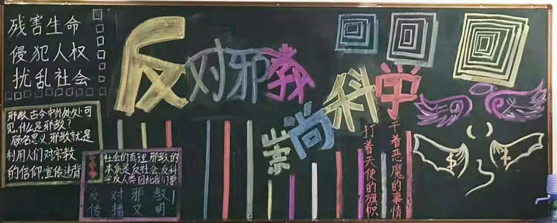 残害生命
侵犯人权
扰乱社会
反对邪教
崇尚科学
邪教古今中外处处可
见,什么是邪教?
顾名思义,邪教就是
利用人们对宗教
的信仰,宣传违背
社会的真理,邪教的
本质是反社会、反科
学、反人类
反对邪教
传播文明
打着天使的旗帜
干着恶魔的事情